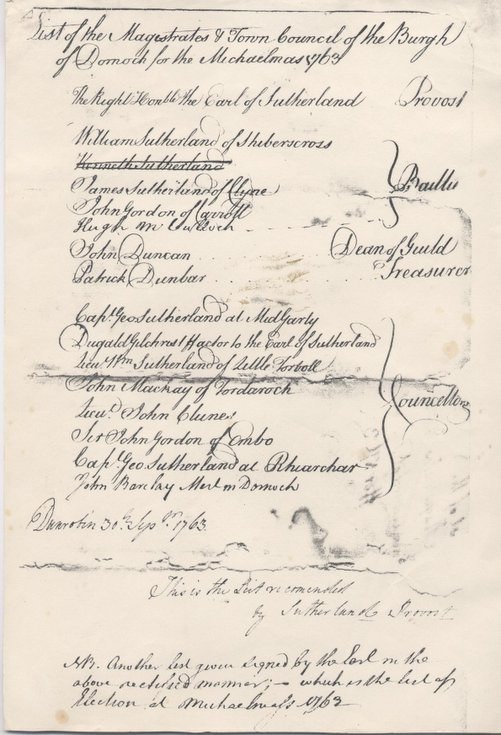 List of the Magistrates & Town Council of the Burgh
of Dornoch for the Michaelmas 1763
The Right Honble the Earl of Sutherland Provost
William Sutherland of Shiberscross
Kenneth Sutherland
James Sutherland of Clyne
John Gordon of Carroll
Baillies
Hugh McCulloch
John Duncan Dean of Guild
Patrick Dunbar Treasurer
Capt. Geo Sutherland at MidGarty
Dugald Gilchrist Factor to the Earl of Sutherland
Lieu. Wm Sutherland of Little Torboll
John Mackay of Tordaroch
Councellors
Lieut. John Clunes
Sir John Gordon of Embo
Capt. Geo Sutherland at Rhiarchar
John Barclay Mert in Dornoch
Dunrobin 30th Sepr. 1763
This is the List recomended
by Sutherland Provost
NB. Another list given signed by the Earl in the
above manner; – which is the list of
Election at Michaelmass 1763